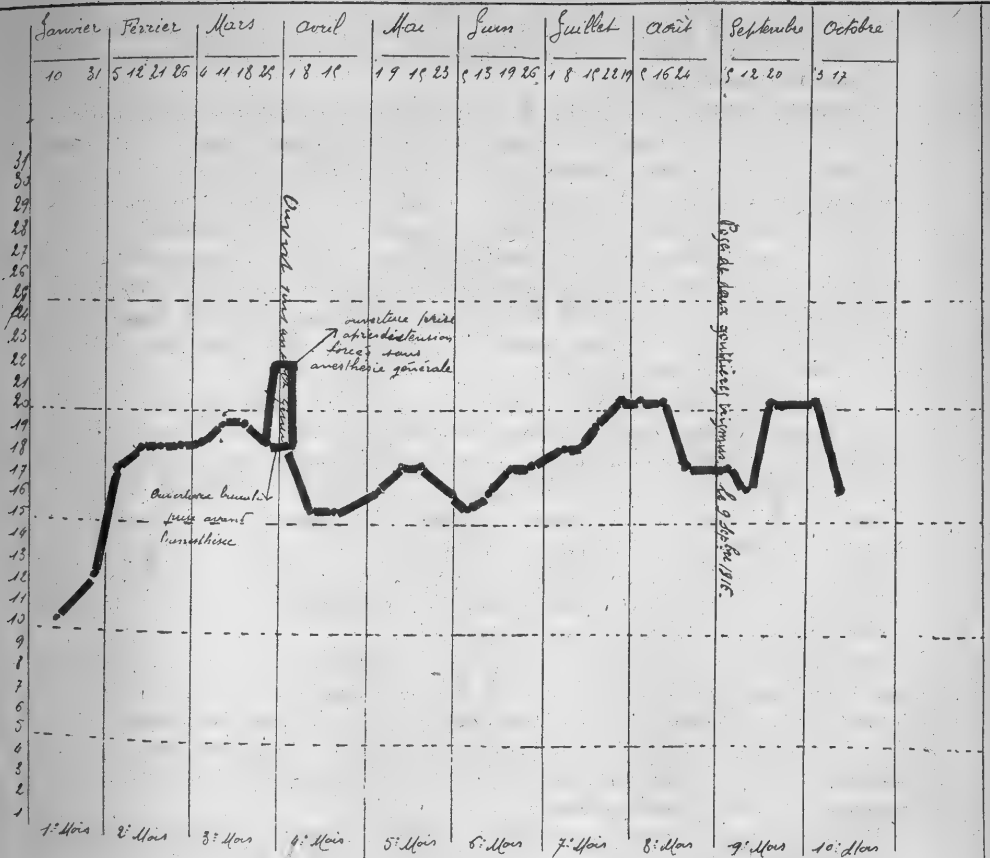 Janvier Février Mars avril Mai Juin Juillet août Septembre Octobre
10 31 5 12 21 26 4 11 18 25 1 8 15 1 9 15 23 5 13 19 26 1 8 15 22 29 5 16 24 5 12 20 3 17
31
30
29
28
27
26
25
24
23
22
21
20
19
18
17
16
15
14
13
12
11
10
9
8
7
6
5
4
3
2
1
ouverture prise
après distension
forcée sous
anesthésie générale
Ouverture
prise avant
l'anesthésie
Pose de deux gouttières le 9 septbre 1916.
1er Mois 2e Mois 3e Mois 4e Mois 5e Mois 6e Mois 7e Mois 8e Mois 9e Mois 10e Mois